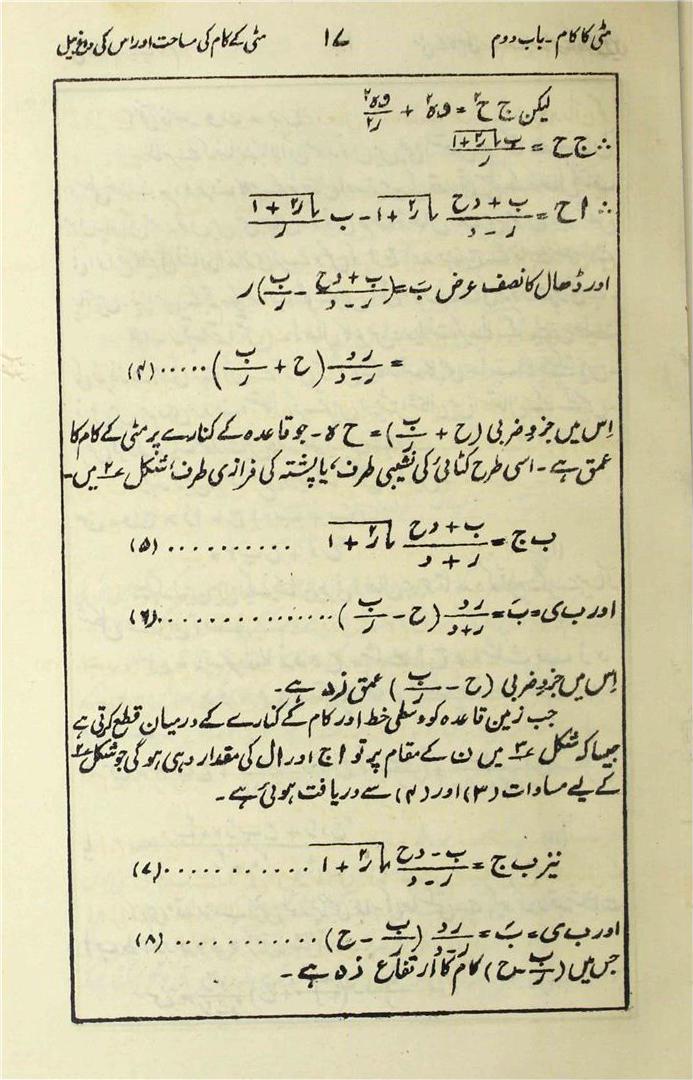 مٹی کا کام - باب دوم ۱۷ مٹی کے کام کی مساحت اور اس کی روغبیل
لیکن ج ح^۲ = وہ^۲ + وہ^۲/ر^۲
∴ ج ح = ب√(ر^۲ + ۱)/ر
∴ ا ح = (ب + دح)/(ر - د) √(ر^۲ + ۱) - ب √(ر^۲ + ۱)/ر
اور ڈھال کا نصف عرض بَ = ((ب + دح)/(ر - د) - ب/ر) ر
= رد/(ر - د) (ح + ب/ر) ..... (۴)
اِس میں جزو ضربی (ح + ب/ر) = ح ہ - جو قاعدہ کے کنارے پر مٹی کے کام کا
عمق ہے - اسی طرح کٹائی کی نشیبی طرف، یا پشتہ کی فرازی طرف، شکل ۲ میں -
ب ج = (ب + دح)/(ر + د) √(ر^۲ + ۱) .......... (۵)
اور ب ی = بَ = رد/(ر + د) (ح - ب/ر) .............. (۶)
اِس میں جزو ضربی (ح - ب/ر) عمق ز ہ ہے -
جب زمین قاعدہ کو وسطی خط اور کام کے کنارے کے درمیان قطع کرتی ہے
جیسا کہ شکل ۳ میں ن کے مقام پر تو ا ج اور ال کی مقدار وہی ہوگی جو شکل ۲
کے لیے مساوات (۳) اور (۴) سے دریافت ہوئی ہے -
نیز ب ج = (ب - دح)/(ر - د) √(ر^۲ + ۱) ............ (۷)
اور ب ی = بَ = رد/(ر - د) (ب/ر - ح) ............ (۸)
جس میں (ب/ر - ح) کام کا ارتفاع ز ہ ہے -